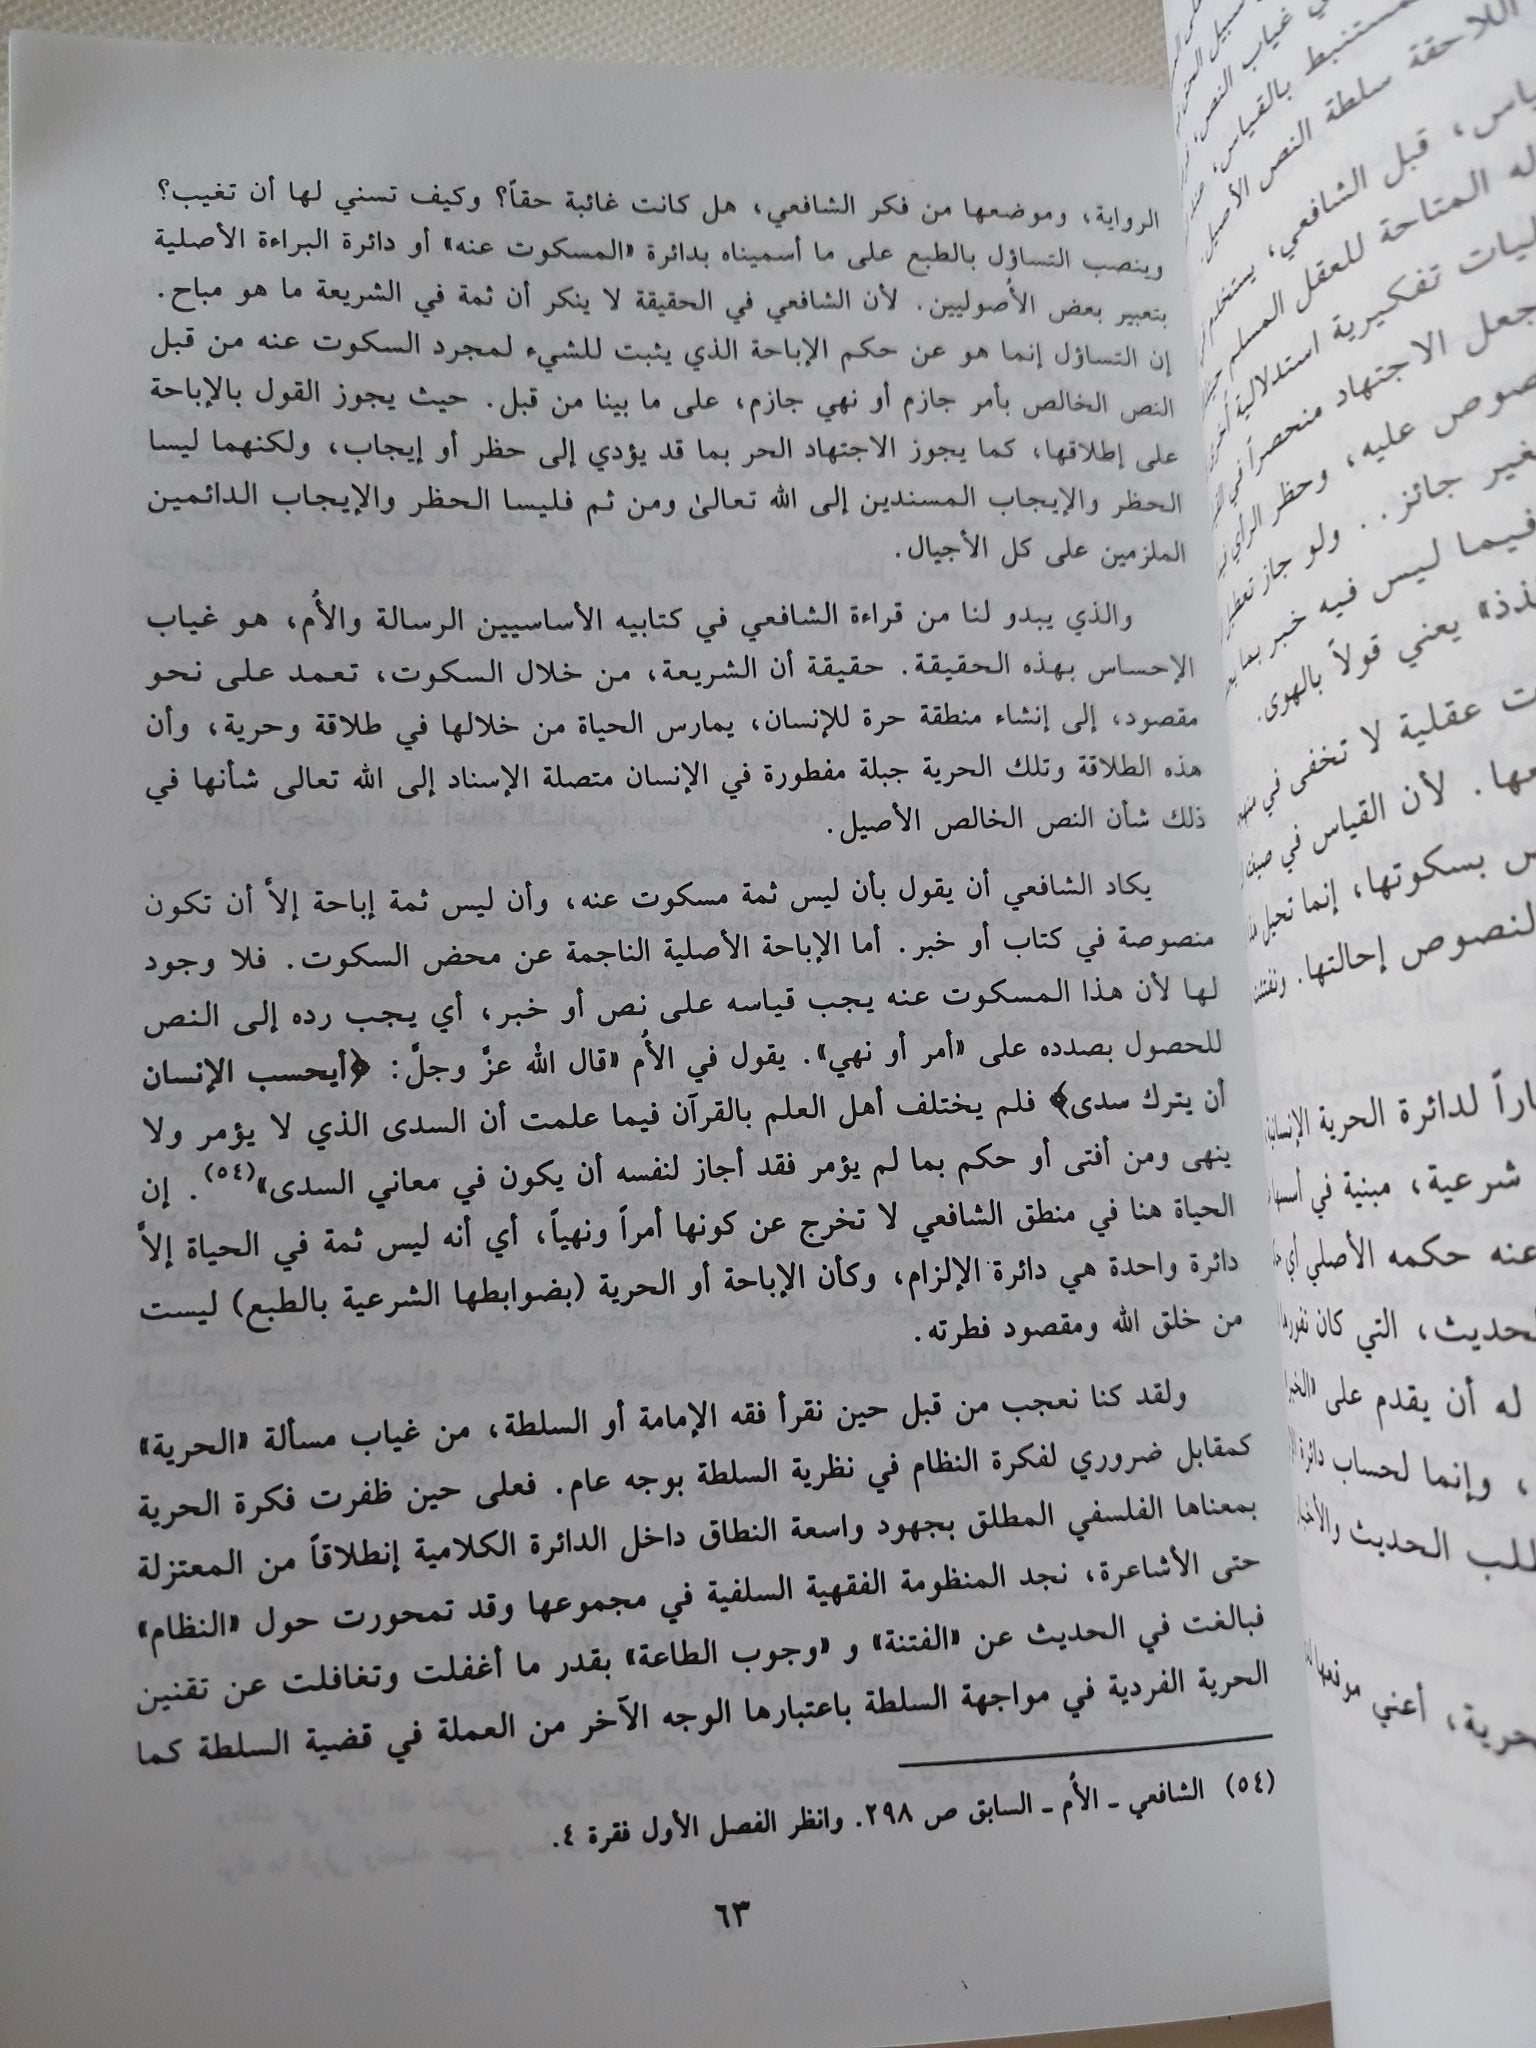 الرواية، وموضعها من فكر الشافعي، هل كانت غائبة حقاً؟ وكيف تسنى لها أن تغيب؟
وينصب التساؤل بالطبع على ما أسميناه بدائرة «المسكوت عنه» أو دائرة البراءة الأصلية
بتعبير بعض الأُصوليين. لأن الشافعي في الحقيقة لا ينكر أن ثمة في الشريعة ما هو مباح.
إن التساؤل إنما هو عن حكم الإباحة الذي يثبت للشيء لمجرد السكوت عنه من قبل
النص الخالص بأمر جازم أو نهي جازم، على ما بينا من قبل. حيث يجوز القول بالإباحة
على إطلاقها، كما يجوز الاجتهاد الحر بما قد يؤدي إلى حظر أو إيجاب، ولكنهما ليسا
الحظر والإيجاب المسندين إلى الله تعالىٰ ومن ثم فليسا الحظر والإيجاب الدائمين
الملزمين على كل الأجيال.
والذي يبدو لنا من قراءة الشافعي في كتابيه الأساسيين الرسالة والأُم، هو غياب
الإحساس بهذه الحقيقة. حقيقة أن الشريعة، من خلال السكوت، تعمد على نحو
مقصود، إلى إنشاء منطقة حرة للإنسان، يمارس الحياة من خلالها في طلاقة وحرية، وأن
هذه الطلاقة وتلك الحرية جبلة مفطورة في الإنسان متصلة الإسناد إلى الله تعالى شأنها في
ذلك شأن النص الخالص الأصيل.
يكاد الشافعي أن يقول بأن ليس ثمة مسكوت عنه، وأن ليس ثمة إباحة إلاَّ أن تكون
منصوصة في كتاب أو خبر. أما الإباحة الأصلية الناجمة عن محض السكوت. فلا وجود
لها لأن هذا المسكوت عنه يجب قياسه على نص أو خبر، أي يجب رده إلى النص
للحصول بصدده على «أمر أو نهي». يقول في الأُم «قال الله عزَّ وجلَّ: ﴿أيحسب الإنسان
أن يترك سدى﴾ فلم يختلف أهل العلم بالقرآن فيما علمت أن السدى الذي لا يؤمر ولا
ينهى ومن أفتى أو حكم بما لم يؤمر فقد أجاز لنفسه أن يكون في معاني السدى»(٥٤). إن
الحياة هنا في منطق الشافعي لا تخرج عن كونها أمراً ونهياً، أي أنه ليس ثمة في الحياة إلاَّ
دائرة واحدة هي دائرة الإلزام، وكأن الإباحة أو الحرية (بضوابطها الشرعية بالطبع) ليست
من خلق الله ومقصود فطرته.
ولقد كنا نعجب من قبل حين نقرأ فقه الإمامة أو السلطة، من غياب مسألة «الحرية»
كمقابل ضروري لفكرة النظام في نظرية السلطة بوجه عام. فعلى حين ظفرت فكرة الحرية
بمعناها الفلسفي المطلق بجهود واسعة النطاق داخل الدائرة الكلامية إنطلاقاً من المعتزلة
حتى الأشاعرة، نجد المنظومة الفقهية السلفية في مجموعها وقد تمحورت حول «النظام»
فبالغت في الحديث عن «الفتنة» و «وجوب الطاعة» بقدر ما أغفلت وتغافلت عن تقنين
الحرية الفردية في مواجهة السلطة باعتبارها الوجه الآخر من العملة في قضية السلطة كما
(٥٤) الشافعي ـ الأُم ـ السابق ص ٢٩٨. وانظر الفصل الأول فقرة ٤.
٦٣
غياب النص،
اللاحقة سلطة النص الأصيل.
قبل الشافعي،
المتاحة للعقل المسلم
تفكيرية استدلالية
جعل الاجتهاد منحصراً في
عليه، وحظر الرأي
غير جائز.. ولو جاز
فيما ليس فيه خبر
يعني قولاً بالهوى.
عقلية لا تخفى في
لأن القياس في
بسكوتها، إنما تحيل
النصوص إحالتها.
لدائرة الحرية
شرعية، مبنية في
عنه حكمه الأصلي أي
الحديث، التي كان
له أن يقدم على
، وإنما لحساب دائرة
الحديث
أعني